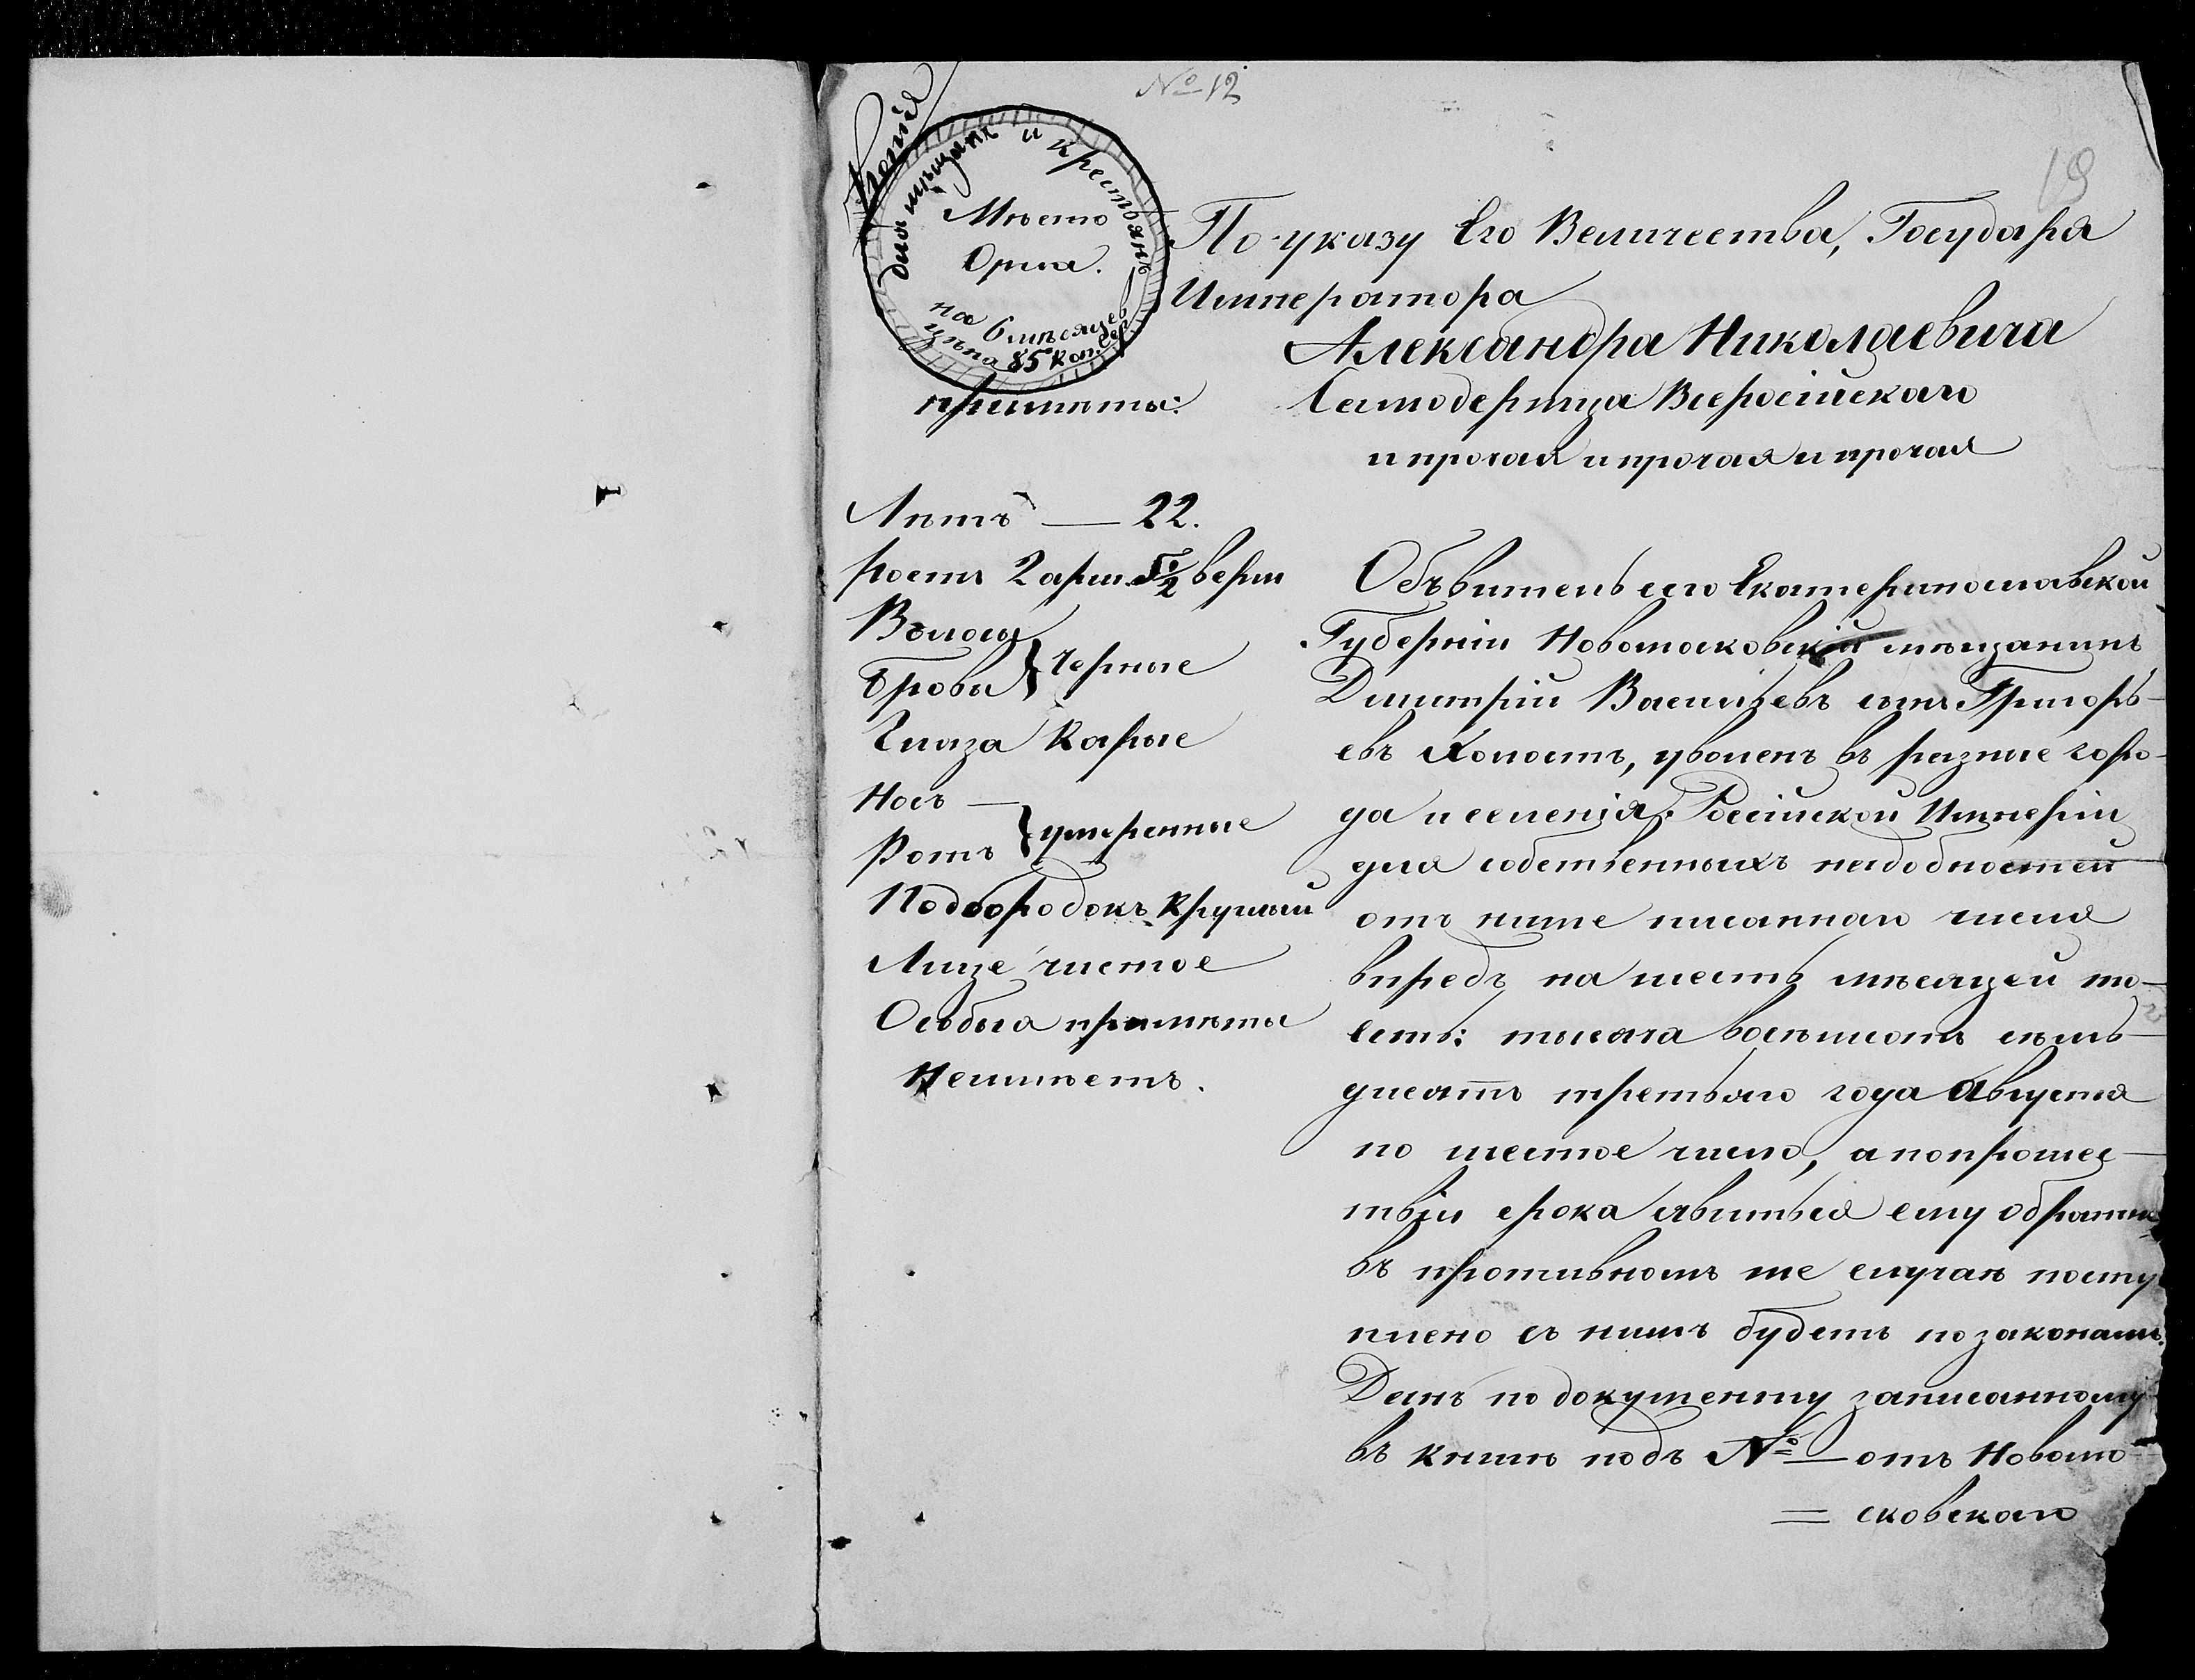 № 12
19
Копія
для мѣщанъ и крестьянъ
Мѣсто
Орла.
на 6 мѣсяцев
цѣна 85 коп сер
По указу Его Величества, Государя
Императора
Александра Николаевича
Самодержца Всеросійскаго
и прочая и прочая и прочая
примѣты:
Лѣтъ — 22.
ростъ 2 арш. 5½ верш
Волосы
Брови } черные
Глаза карые
Носъ —
Ротъ } умеренные
Подбородокъ круглый
Лице чистое
Особыя примѣты
Неимѣетъ.
Объвитель сего Екатеринославской
Губерніи Новомосковскій мѣщанинъ
Димитрій Васильевъ сынъ Григорь-
евъ холостъ, уволенъ въ разные горо-
да и селенія Россійской Имперіи
для собственныхъ надобностей
отъ ниже писаннаго числа
впредъ на шесть мѣсяцей то-
есть: тысяча восѣмсотъ сѣмь-
дисятъ третьяго года Августа
по шестое число, а попрошес-
твіи срока явиться ему обратно
въ противномъ же случаѣ посту
плено съ нимъ будетъ по законамъ.
Данъ по документу записанному
въ книгѣ подъ № — отъ Новомо-
= сковскаго